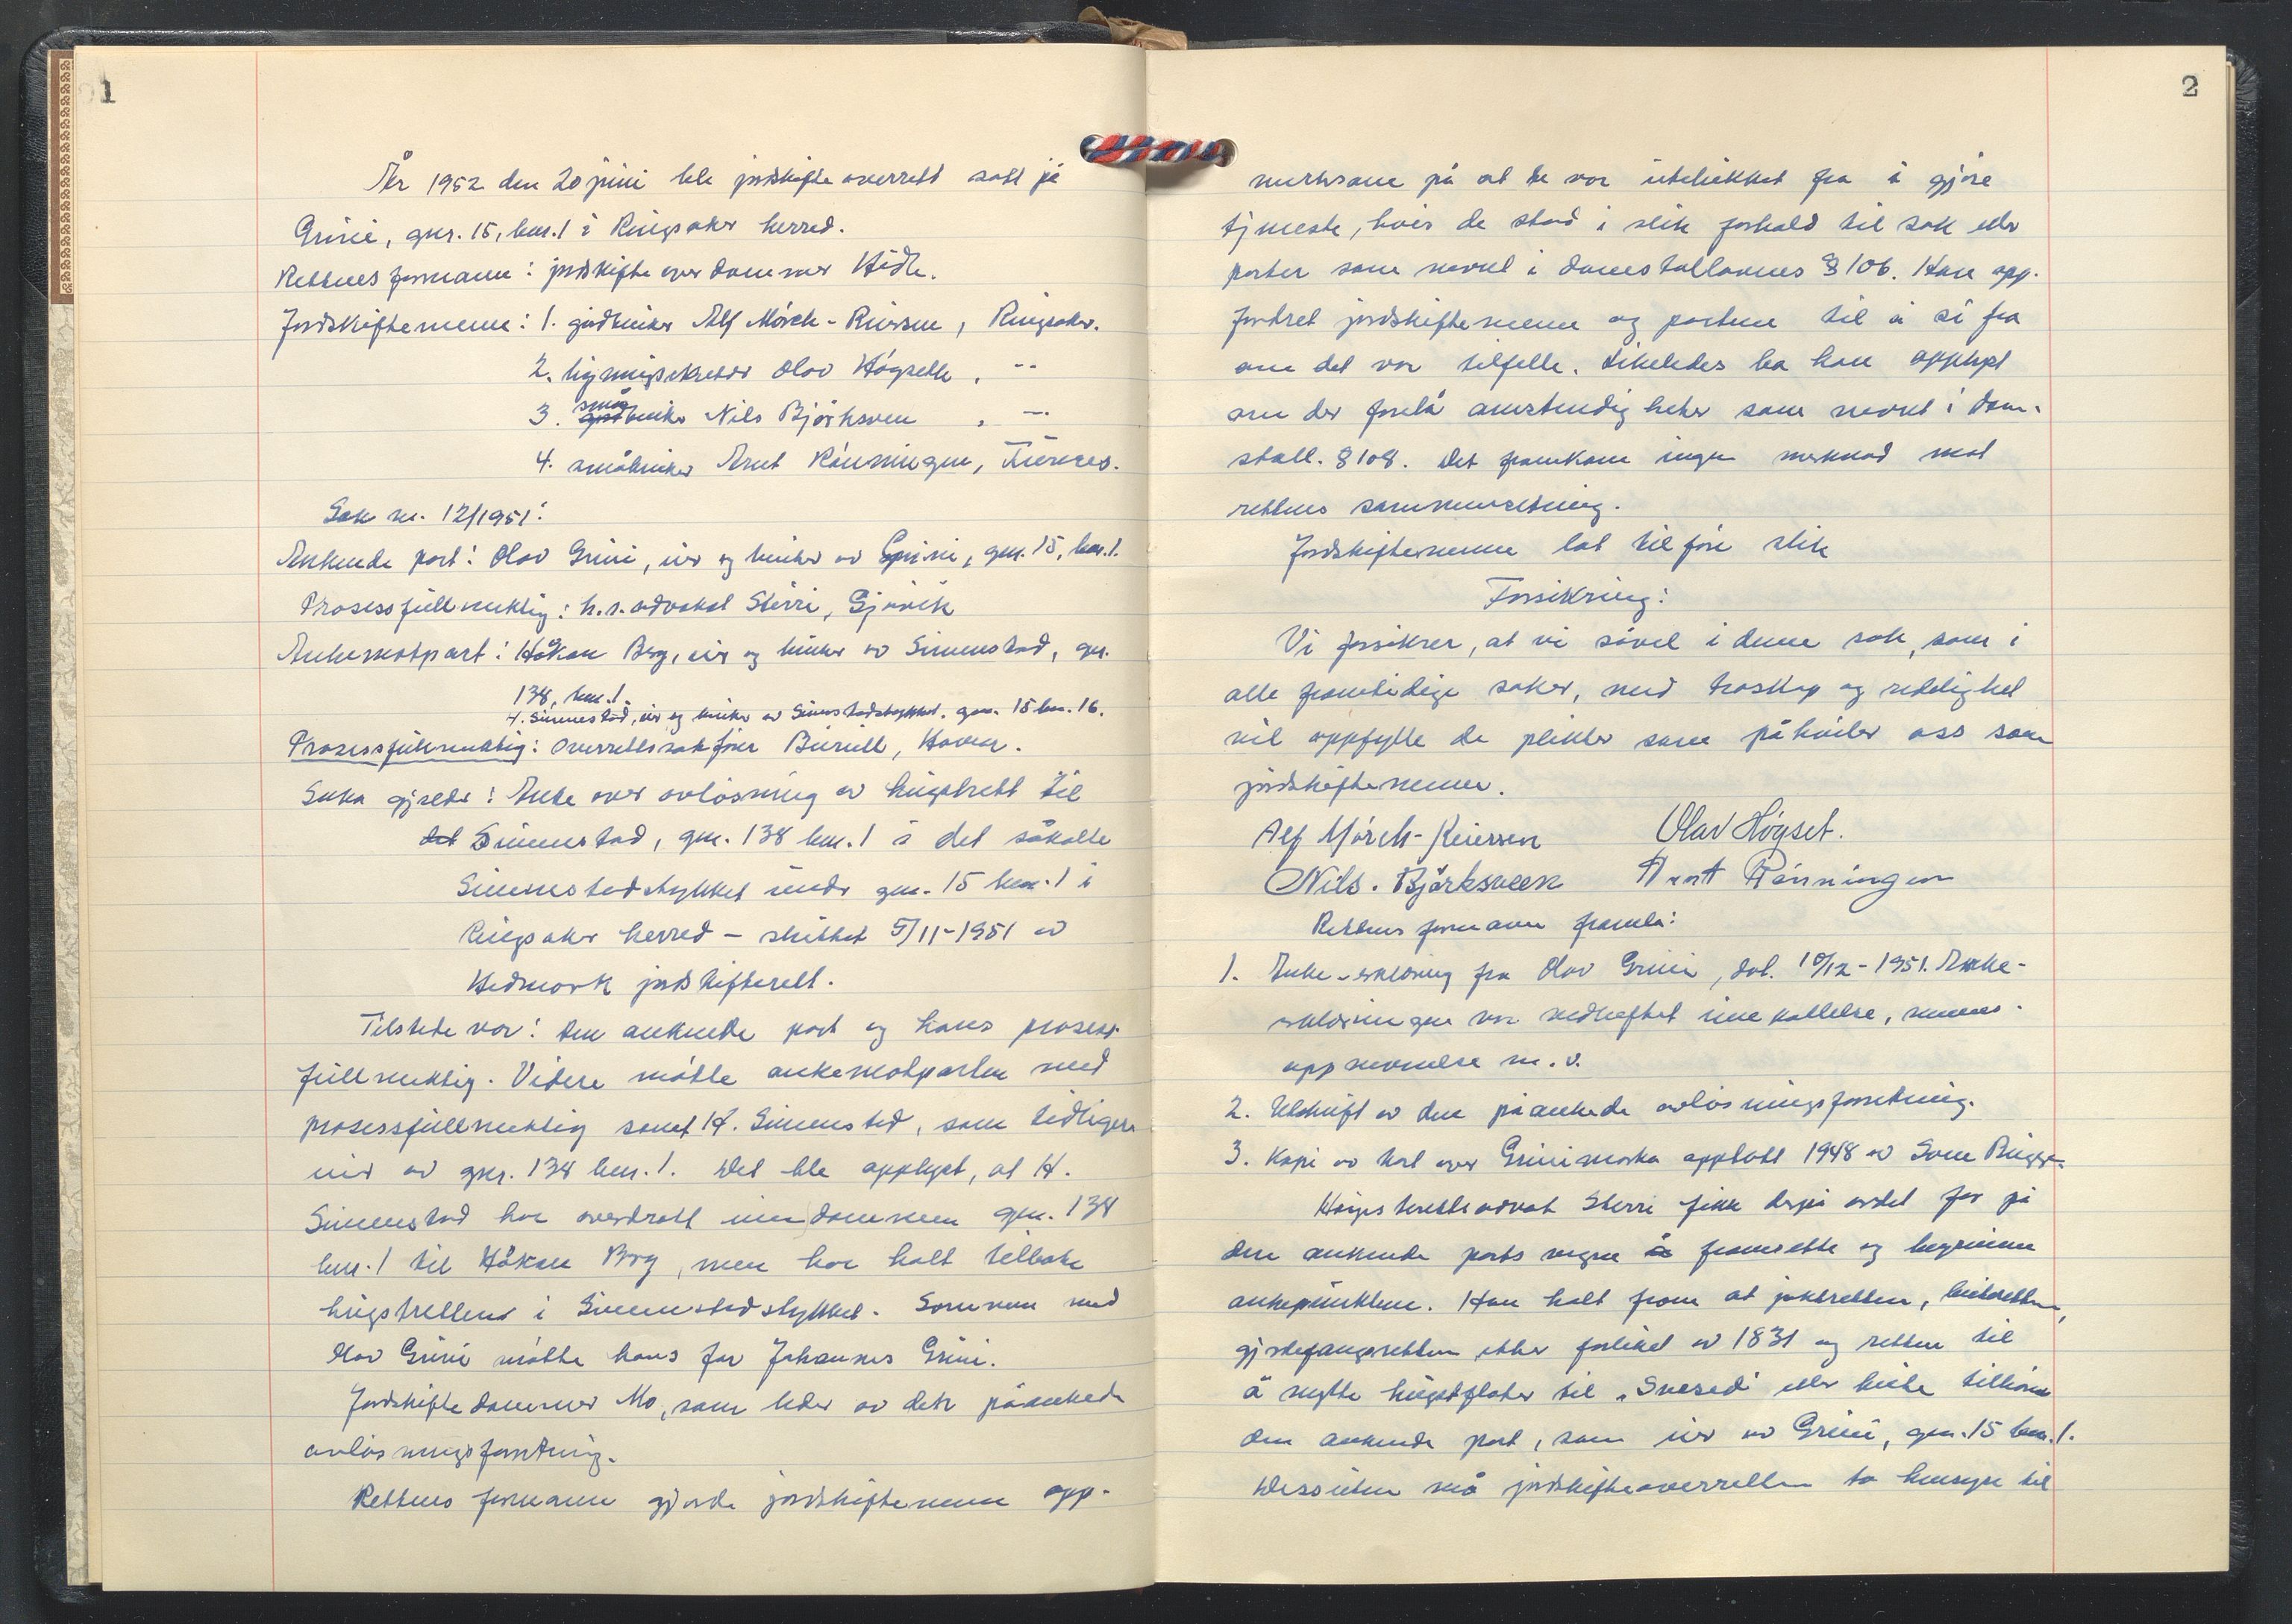 1
År 1952 den 20 juni ble jordskifteoverrett satt på
Grini, gnr. 15, bnr. 1 i Ringsaker herred.
Rettens formann: jordskifteoverdommer Hidle.
Jordskiftemenn: 1. gårdbruker Alf Mörch-Reiersen, Ringsaker.
2. ligningssekretær Olav Högsett, -"-
3. små gårdbruker Nils Björksveen, -"-
4. småbruker Arnt Rönningen, Furnes.
Sak nr. 12/1951:
Ankende part: Olav Grini, eier og bruker av Grini, gnr. 15, bnr. 1.
Prosessfullmektig: h.r.advokat Sterri, Gjövik
Ankemotpart: Håkon Berg, eier og bruker av Simenstad, gnr.
138, bnr. 1.
H. Simenstad, eier og bruker av Simenstadstykket. gnr. 15 bnr. 16.
Prosessfullmektig: Overrettssakförer Biriell, Hamar.
Saka gjelder: Anke over avlösning av hugstrett til
det Simenstad, gnr. 138 bnr. 1 i det såkalte
Simenstadstykket under gnr. 15 bnr. 1 i
Ringsaker herred - sluttet 5/11-1951 av
Hedmark jordskifterett.
Tilstede var: Den ankende part og hans prosess-
fullmektig. Videre mötte ankemotparten med
prosessfullmektig samt H. Simenstad, som tidligere
eier av gnr. 138 bnr. 1. Det ble opplyst, at H.
Simenstad har overdratt eiendommen gnr. 138
bnr. 1 til Håkon Berg, men har holt tilbake
hugstretten i Simenstadstykket. Sammen med
Olav Grini mötte hans far Johannes Grini.
Jordskiftedommer Mo, som leder av den påankede
avlösningsforretning.
Rettens formann gjorde jordskiftemenn opp-
2
merksame på at de var utelukket fra å gjöre
tjeneste, hvis de stod i slik forhold til sak eller
parter som nevnt i domstollovens § 106. Han opp-
fordret jordskiftemenn og partene til å si fra
om det var tilfelle. Likeledes ba han opplyst
om der forelå omstendigheter som nevnt i dom-
stoll. § 108. Det framkom ingen merknad mot
rettens sammensetning.
Jordskiftemenn lot tilföre slik
Forsikring:
Vi forsikrer, at vi såvel i denne sak, som i
alle framtidige saker, med troskap og redelighet
vil oppfylle de plikter som påhviler oss som
jordskiftemenn.
Alf Mörch-Reiersen Olav Högset.
Nils. Björksveen Arnt Rönningen
Rettens formann framla:
1. Anke-erklæring fra Olav Grini, dat. 10/12-1951. Anke-
erklæringen var vedheftet innkallelse, menns-
oppnevnelse m.v.
2. Utskrift av den påankede avlösningsforretning.
3. Kopi av kart over Grinimarka opptatt 1948 av
Höyesterettsadvokat Sterri fikk derpå ordet for på
den ankende parts vegne å framsette og begrunne
ankepunktene. Han holt fram at jaktretten, beiteretten,
gjerdefangsretten etter forliket av 1831 og retten til
å nytte hugstflater til "Svesed" eller beite tilhörer
den ankende part, som eier av Grini, gnr. 15 bnr. 1.
Dessuten må jordskifteoverretten ta hensyn til